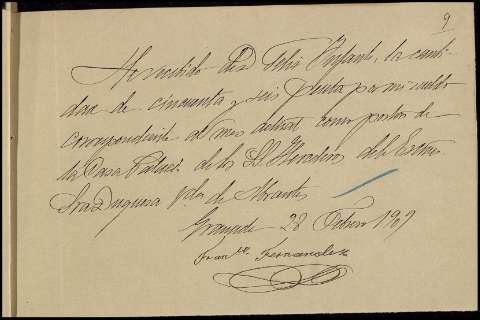 9
He recibido de D. Felix Infante, la canti-
dad de cincuenta y seis pesetas por mi sueldo
correspondiente al mes actual como portero de
la Casa Palacio de los S.S. Herederos de la Exma.
Sra Duquesa Vda de Abrantes
Granada 28 Febrero 1909
Franco. Fernandez